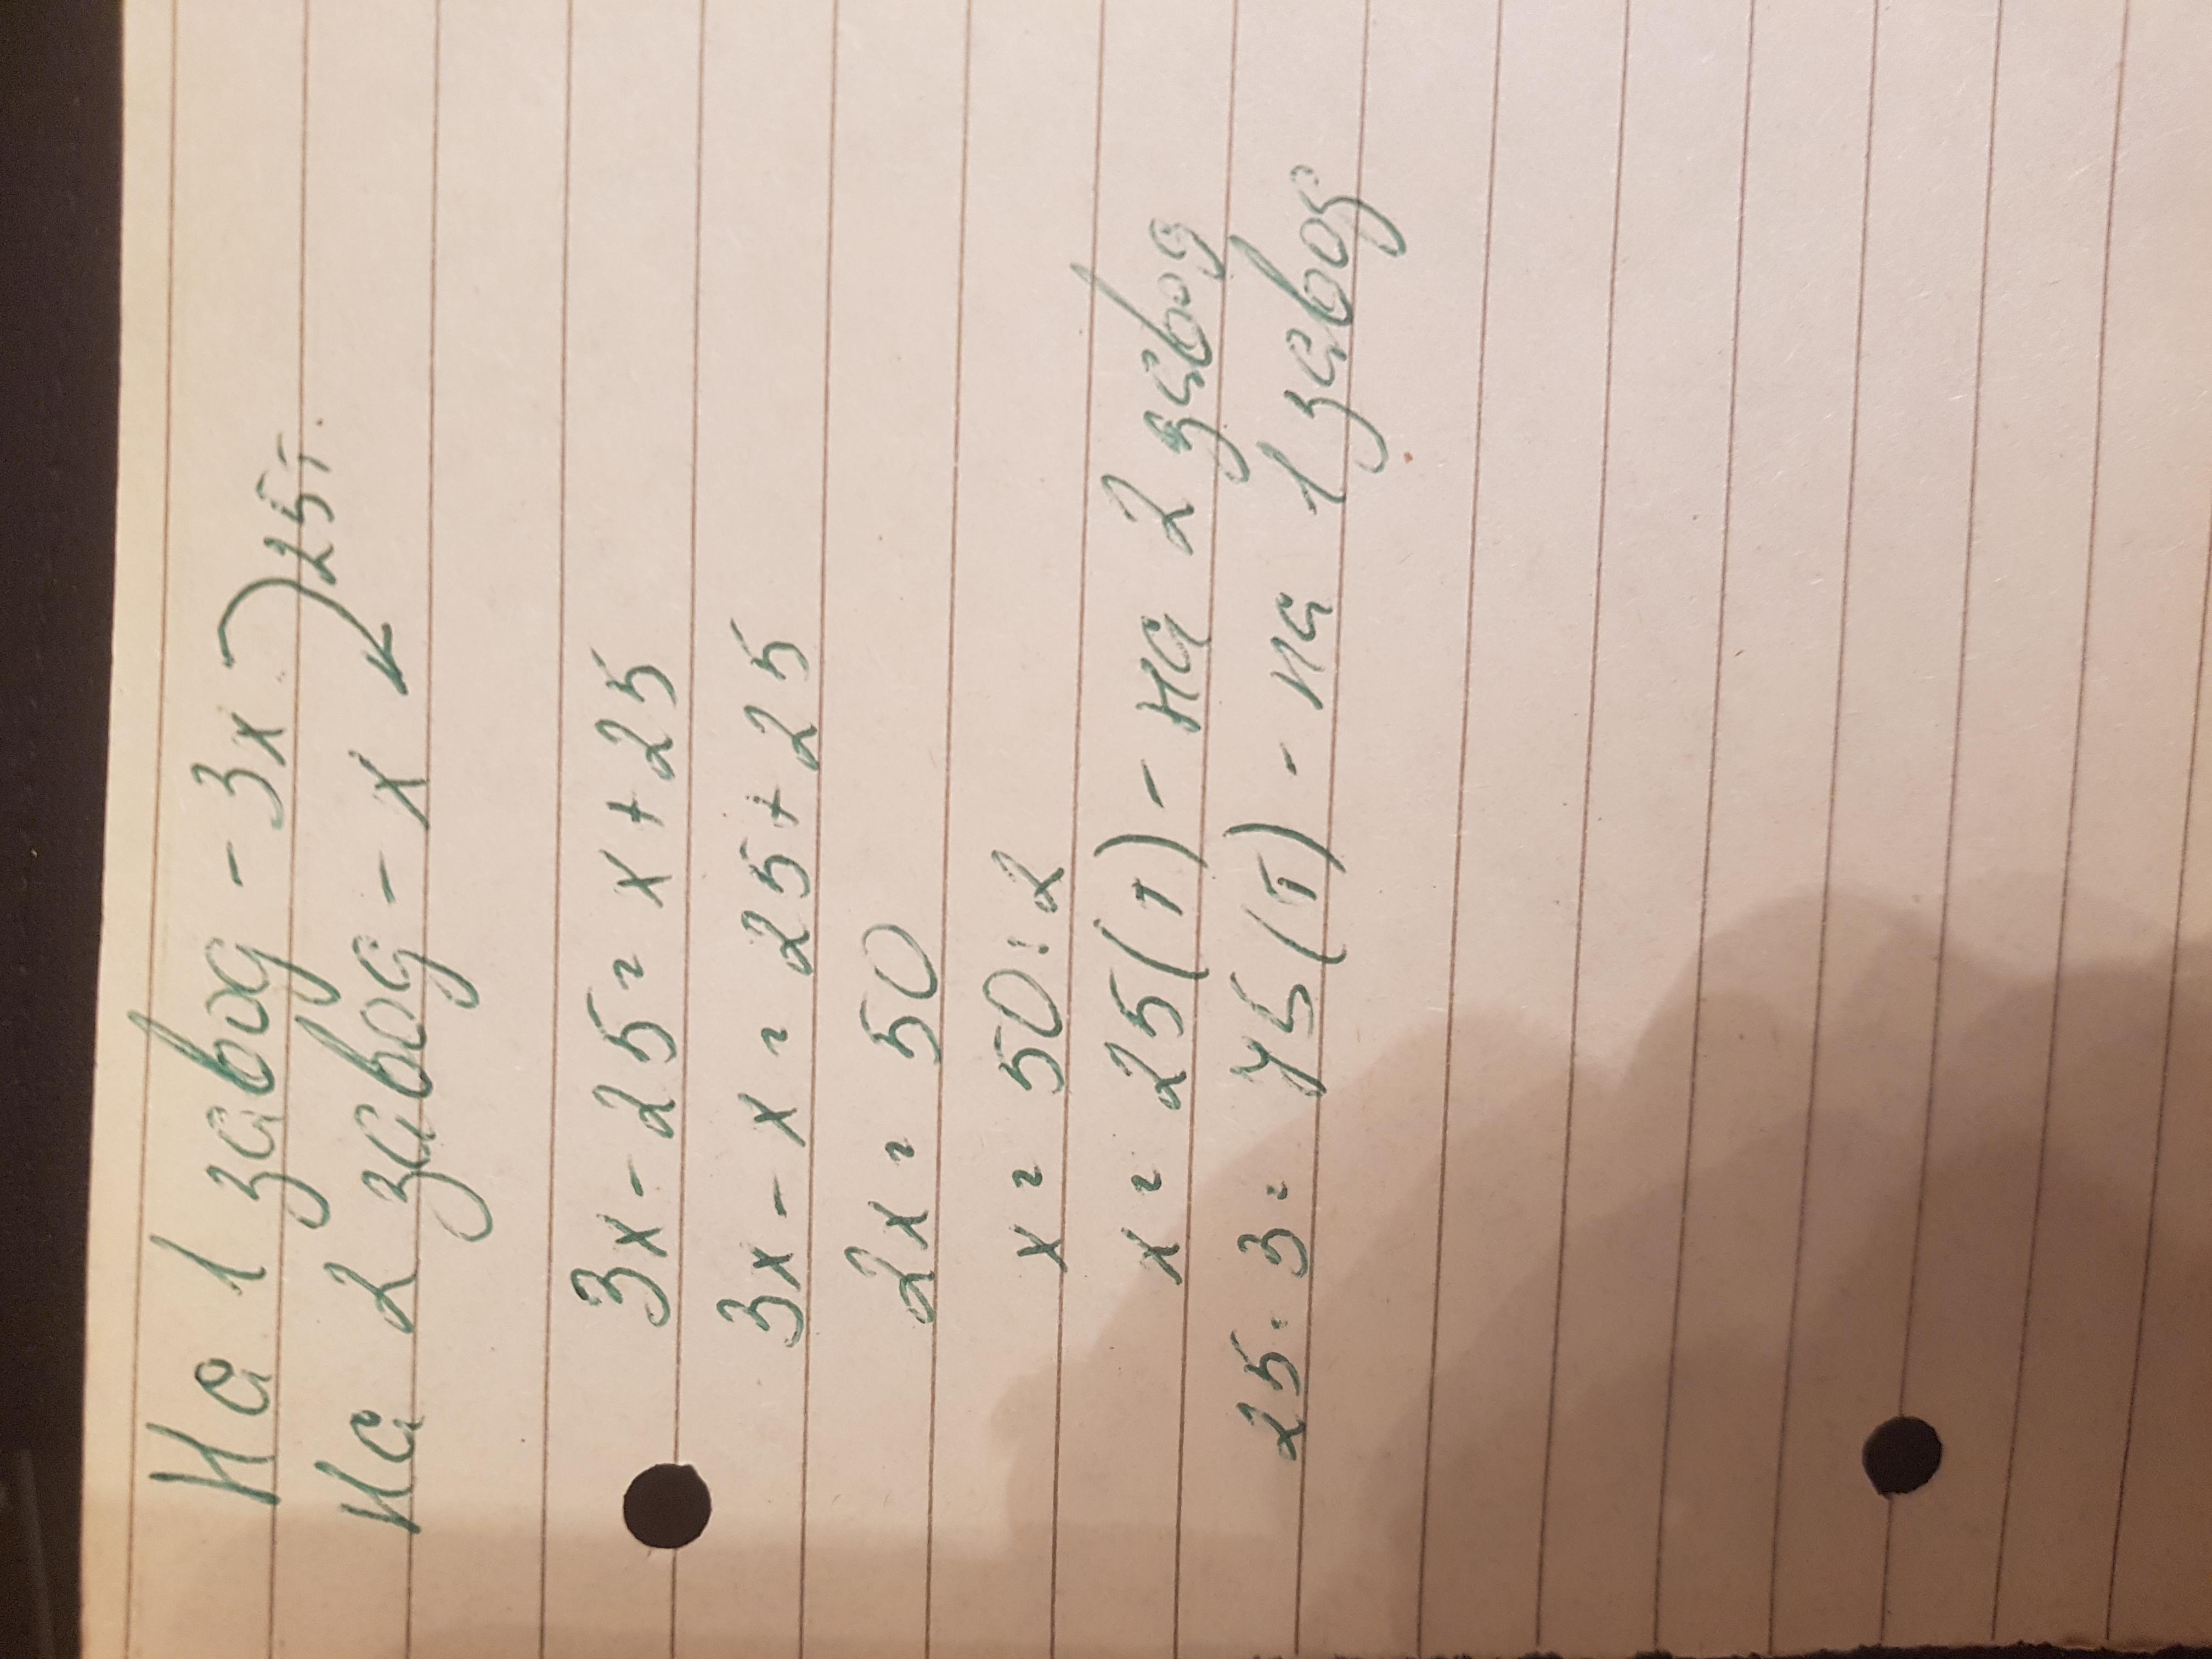 На 1 завод - 3х 25т.
На 2 завод - х
3х - 25 = х + 25
3х - х = 25 + 25
2х = 50
х = 50 : 2
х = 25 (т) - на 2 завод
25 · 3 = 75 (т) - на 1 завод